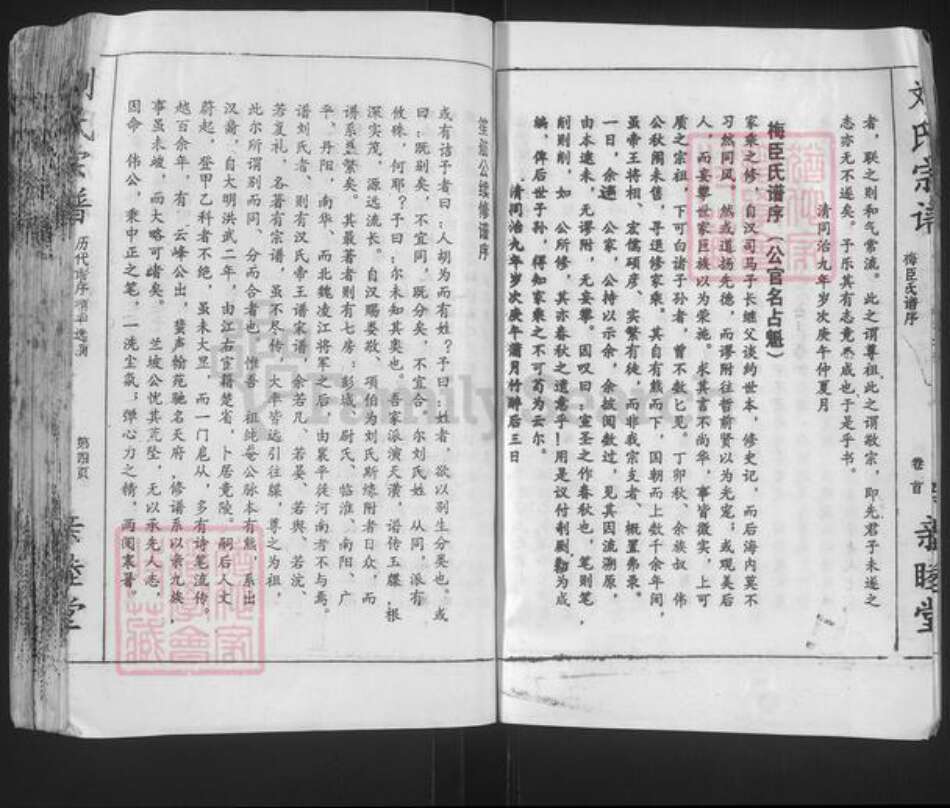 刘氏宗谱
梅臣氏谱序
卷首
亲睦堂
者，联之则和气常流。此之谓尊祖此之谓敬宗，即先君子未遂之
志亦无不遂矣。予乐其有志竟成也于是乎书。
清同治九年岁次庚午仲夏月
梅臣氏谱序（公官名占魁）
家乘之修，自汉司马子长继父谈约世本，修史记，而后海内莫不
习然同风。然或道扬先德，而谬附往哲前贤以为光宠；或观美后
人，而妄攀世家巨族以为荣施。求其言不尚华，事皆征实，上可
质之宗祖，下可白诸子孙者，曾不数匕见。丁卯秋、余族叔 伟
公秋闱未售，寻返修家乘。其自有熊而下，国朝而上数千余年间，
虽帝王将相、宏儒硕彦、实繁有徒，而非我宗支者、概置弗录。
一日，余 公家，公持以示余，余披阅数过，见其因流溯原，
由本逮末，无谬附，无妄攀。因叹曰：宣圣之作春秋也，笔则笔，
削则削，如 公所修，其亦春秋之遗意乎！用是议付剞劂勒为成
编，俾后世子孙，得知家乘之不可苟为云尔。
清同治九年岁次庚午蒲月竹醉后三日
公续修谱序
或有诘予者曰：人胡为而有姓？予曰：姓者，欲以别生分类也。或
曰：既别矣，不宜同，既分矣，不宜合，尔刘氏姓 从同，派有
攸殊，何耶？予曰：尔未知其奥也，吾家派演天潢，谱传玉牒，根
深实茂，源远流长。自汉赐娄敬、项伯为刘氏斯缘附者日众，而
谱系益繁矣。其最著者则有七房：彭城、尉氏、临淮、南阳、广
平、丹阳，南华，而北魏凌江将军之后，由襄平徙河南者不与焉。
谱刘氏者，则有汉氏帝王谱宋谱，余若凡、若晏、若舆、若沆、
若复礼，各著有宗谱，虽不尽传，大率皆远引往牒，尊之为祖，
此尔所谓别而同、分而合者也，惟吾 祖纯菴公脉本有熊，系出
汉裔，自大明洪武二年，由江右宦籍楚省，卜居竟陵。嗣后人文
蔚起，登甲乙科者不绝，虽未大显，而一门扈从，多有诗笔流传。
越百余年，有 云峰公出，蜚声翰苑驰名天府，修谱系以亲九族，
事虽未竣，而大略可睹矣。 兰坡公忧其荒坠，无以承先人志，
因命 伟公，秉中正之笔，一洗尘氛；弹心力之精，两阅寒暑。
刘氏宗谱
历代谱序
第四页
亲睦堂
FamilySearch